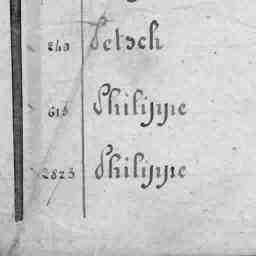 240 Petsch
615 Philippe
2823 Philippe